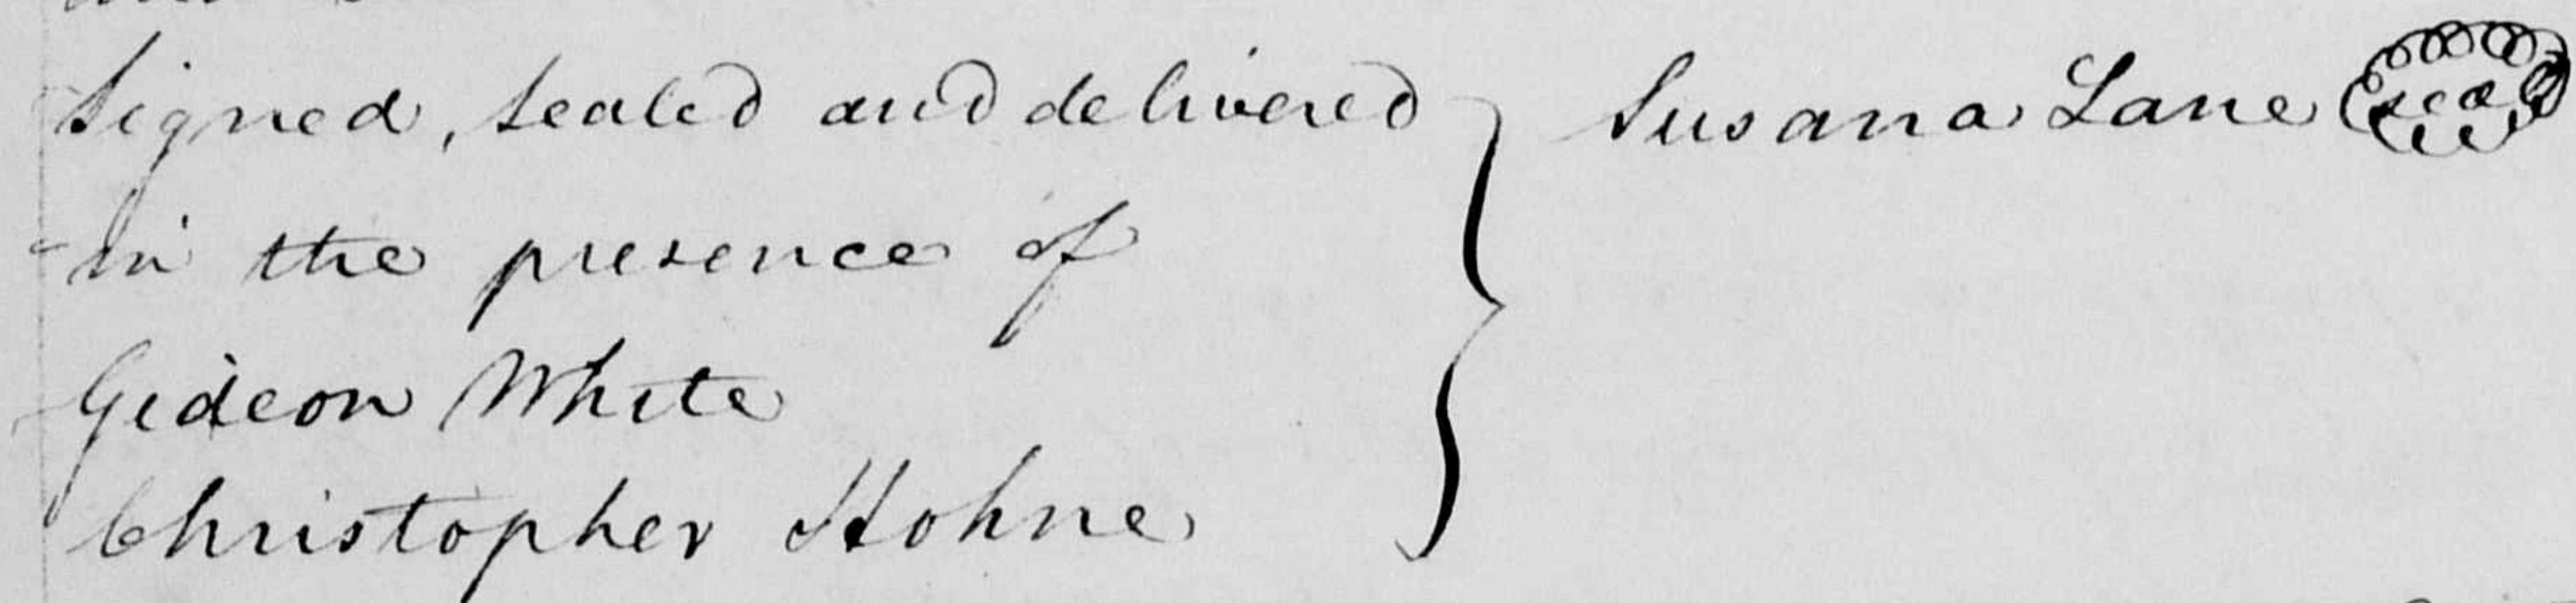 Signed, sealed and delivered
in the presence of
Gideon White
Christopher Hohne
Susana Lane seal